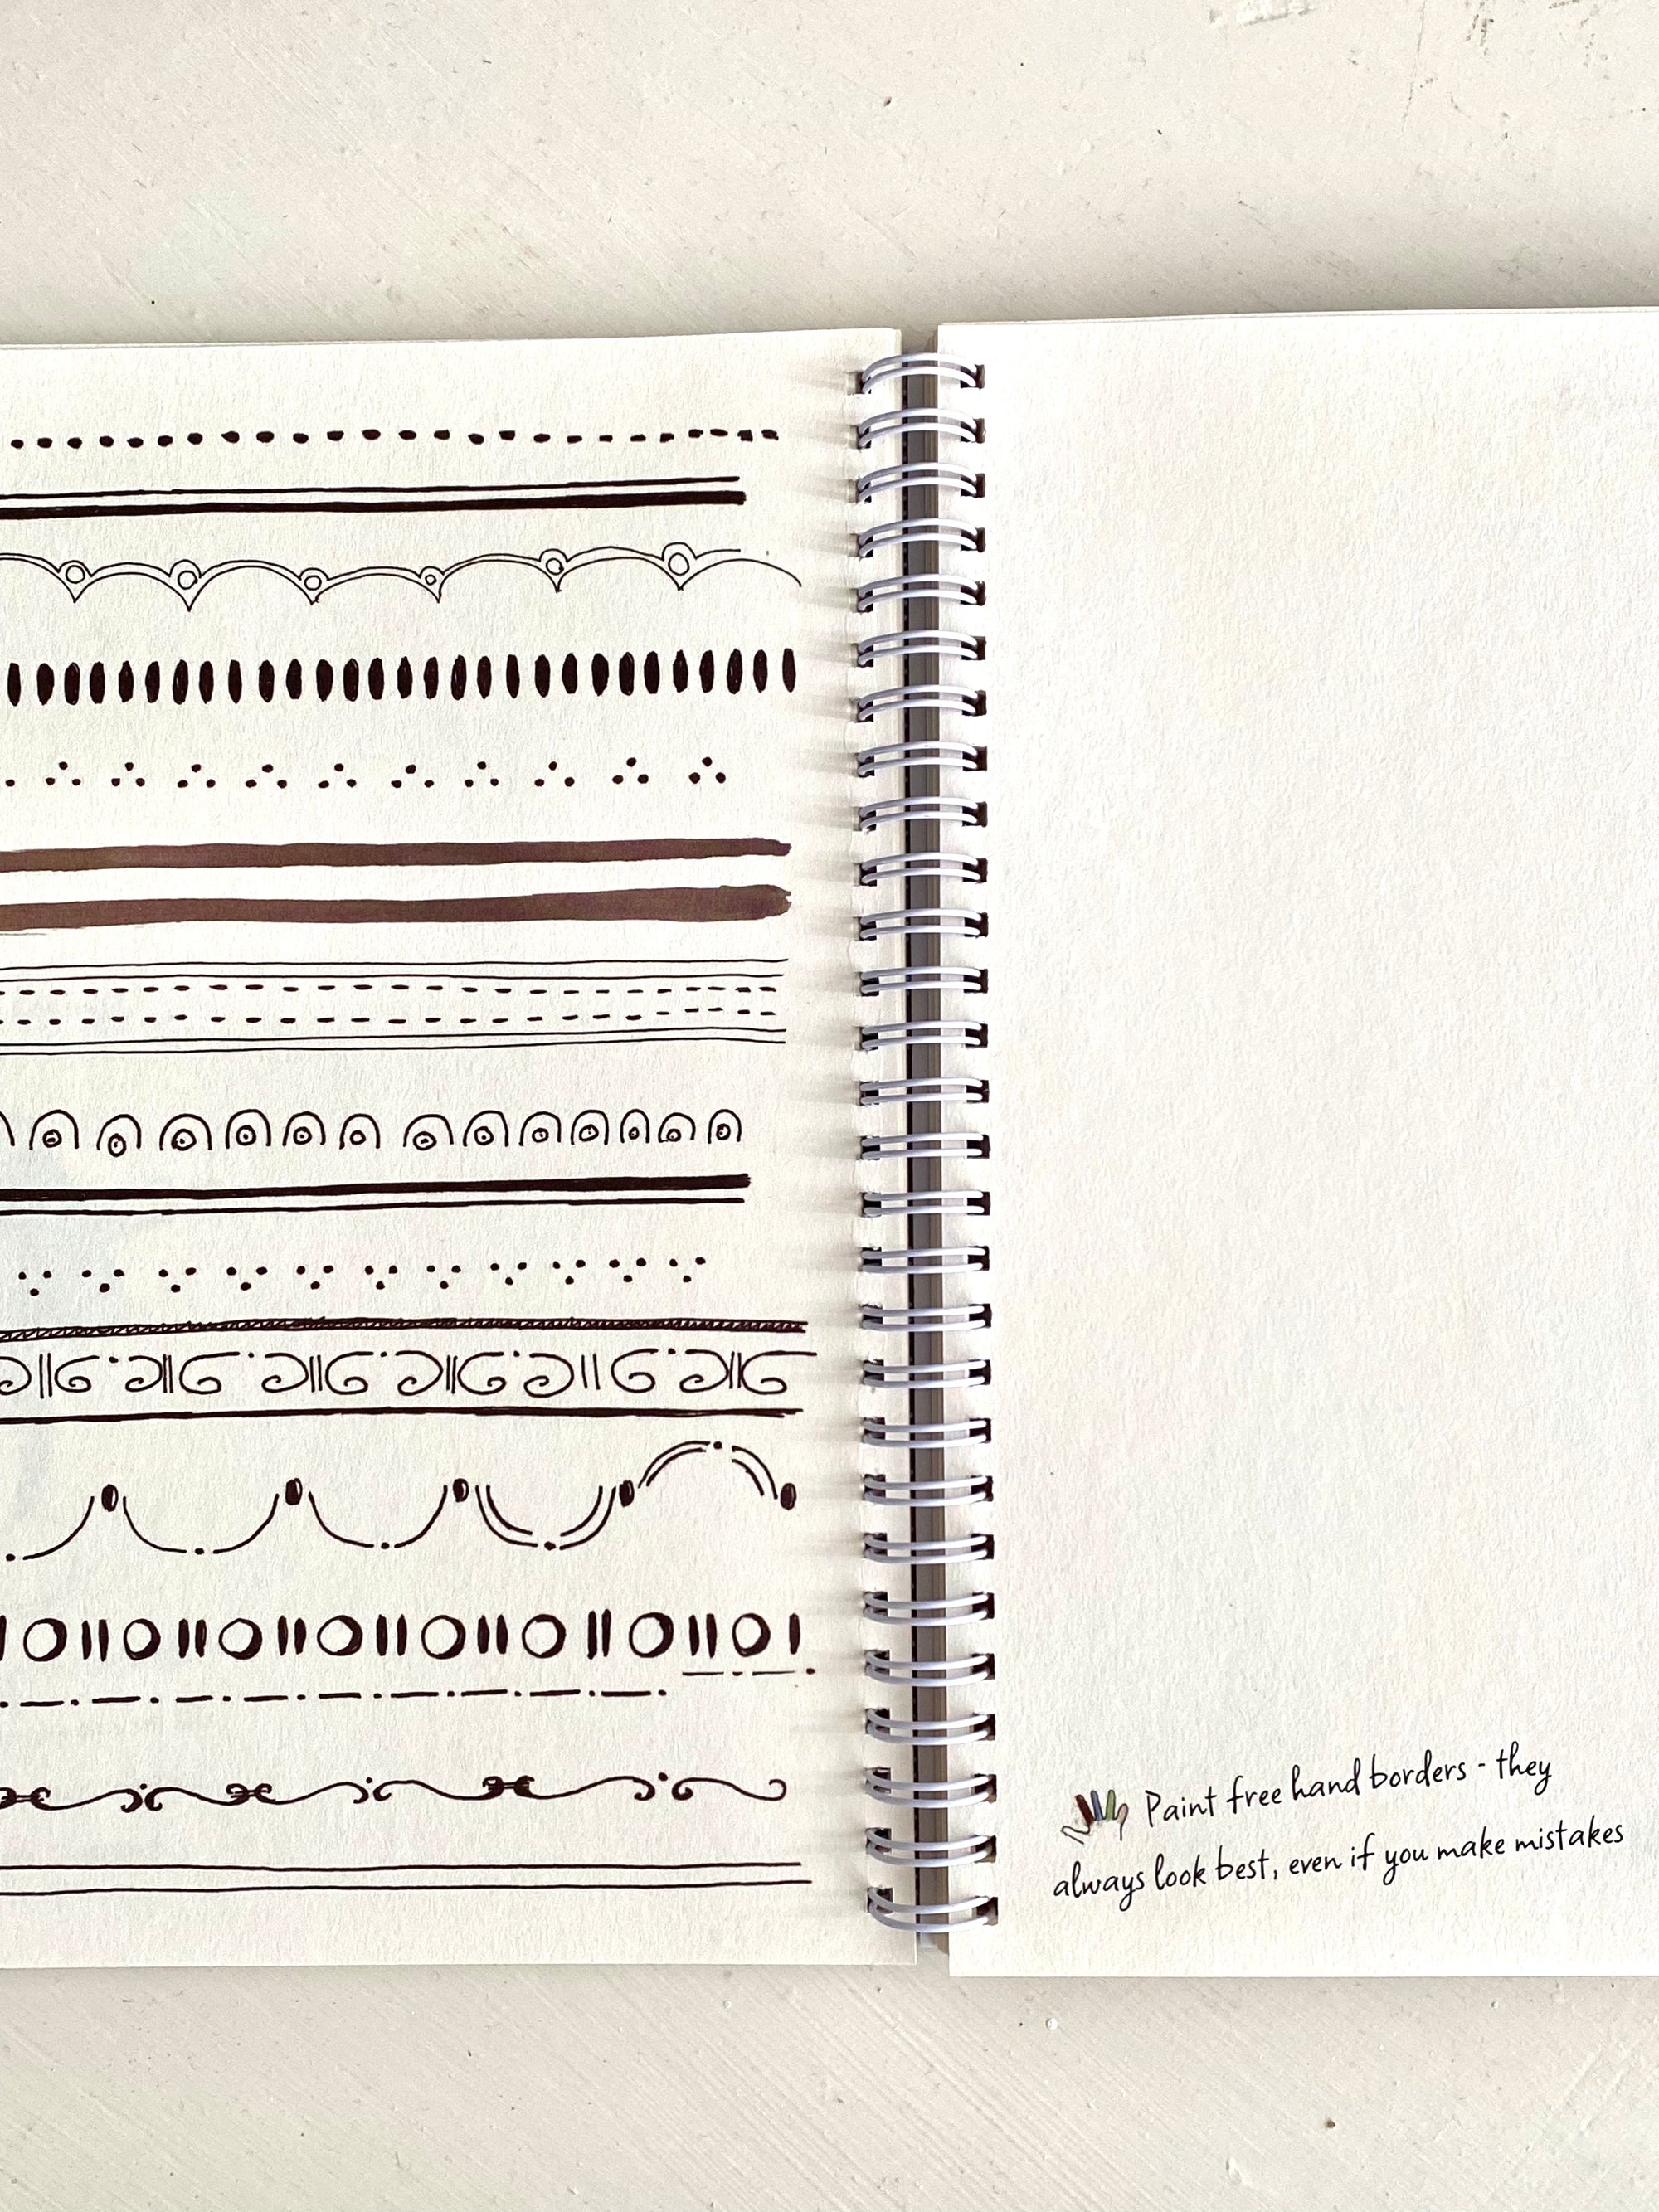 Paint free hand borders - they
always look best, even if you make mistakes